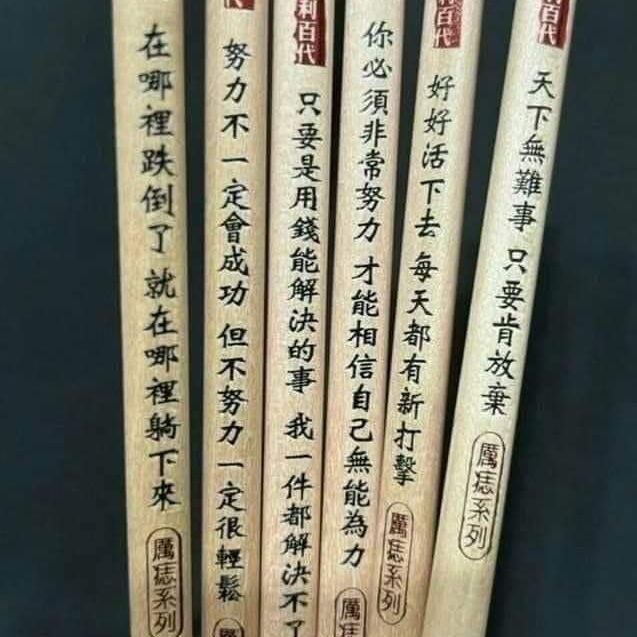 在哪裡跌倒了 就在哪裡躺下來
厲痣系列
代
努力不一定會成功 但不努力一定很輕鬆
利百代
只要是用錢能解決的事 我一件都解決不了
你必須非常努力 才能相信自己無能為力
厲痣
百代
好好活下去 每天都有新打擊
厲痣系列
百代
天下無難事 只要肯放棄
厲痣系列